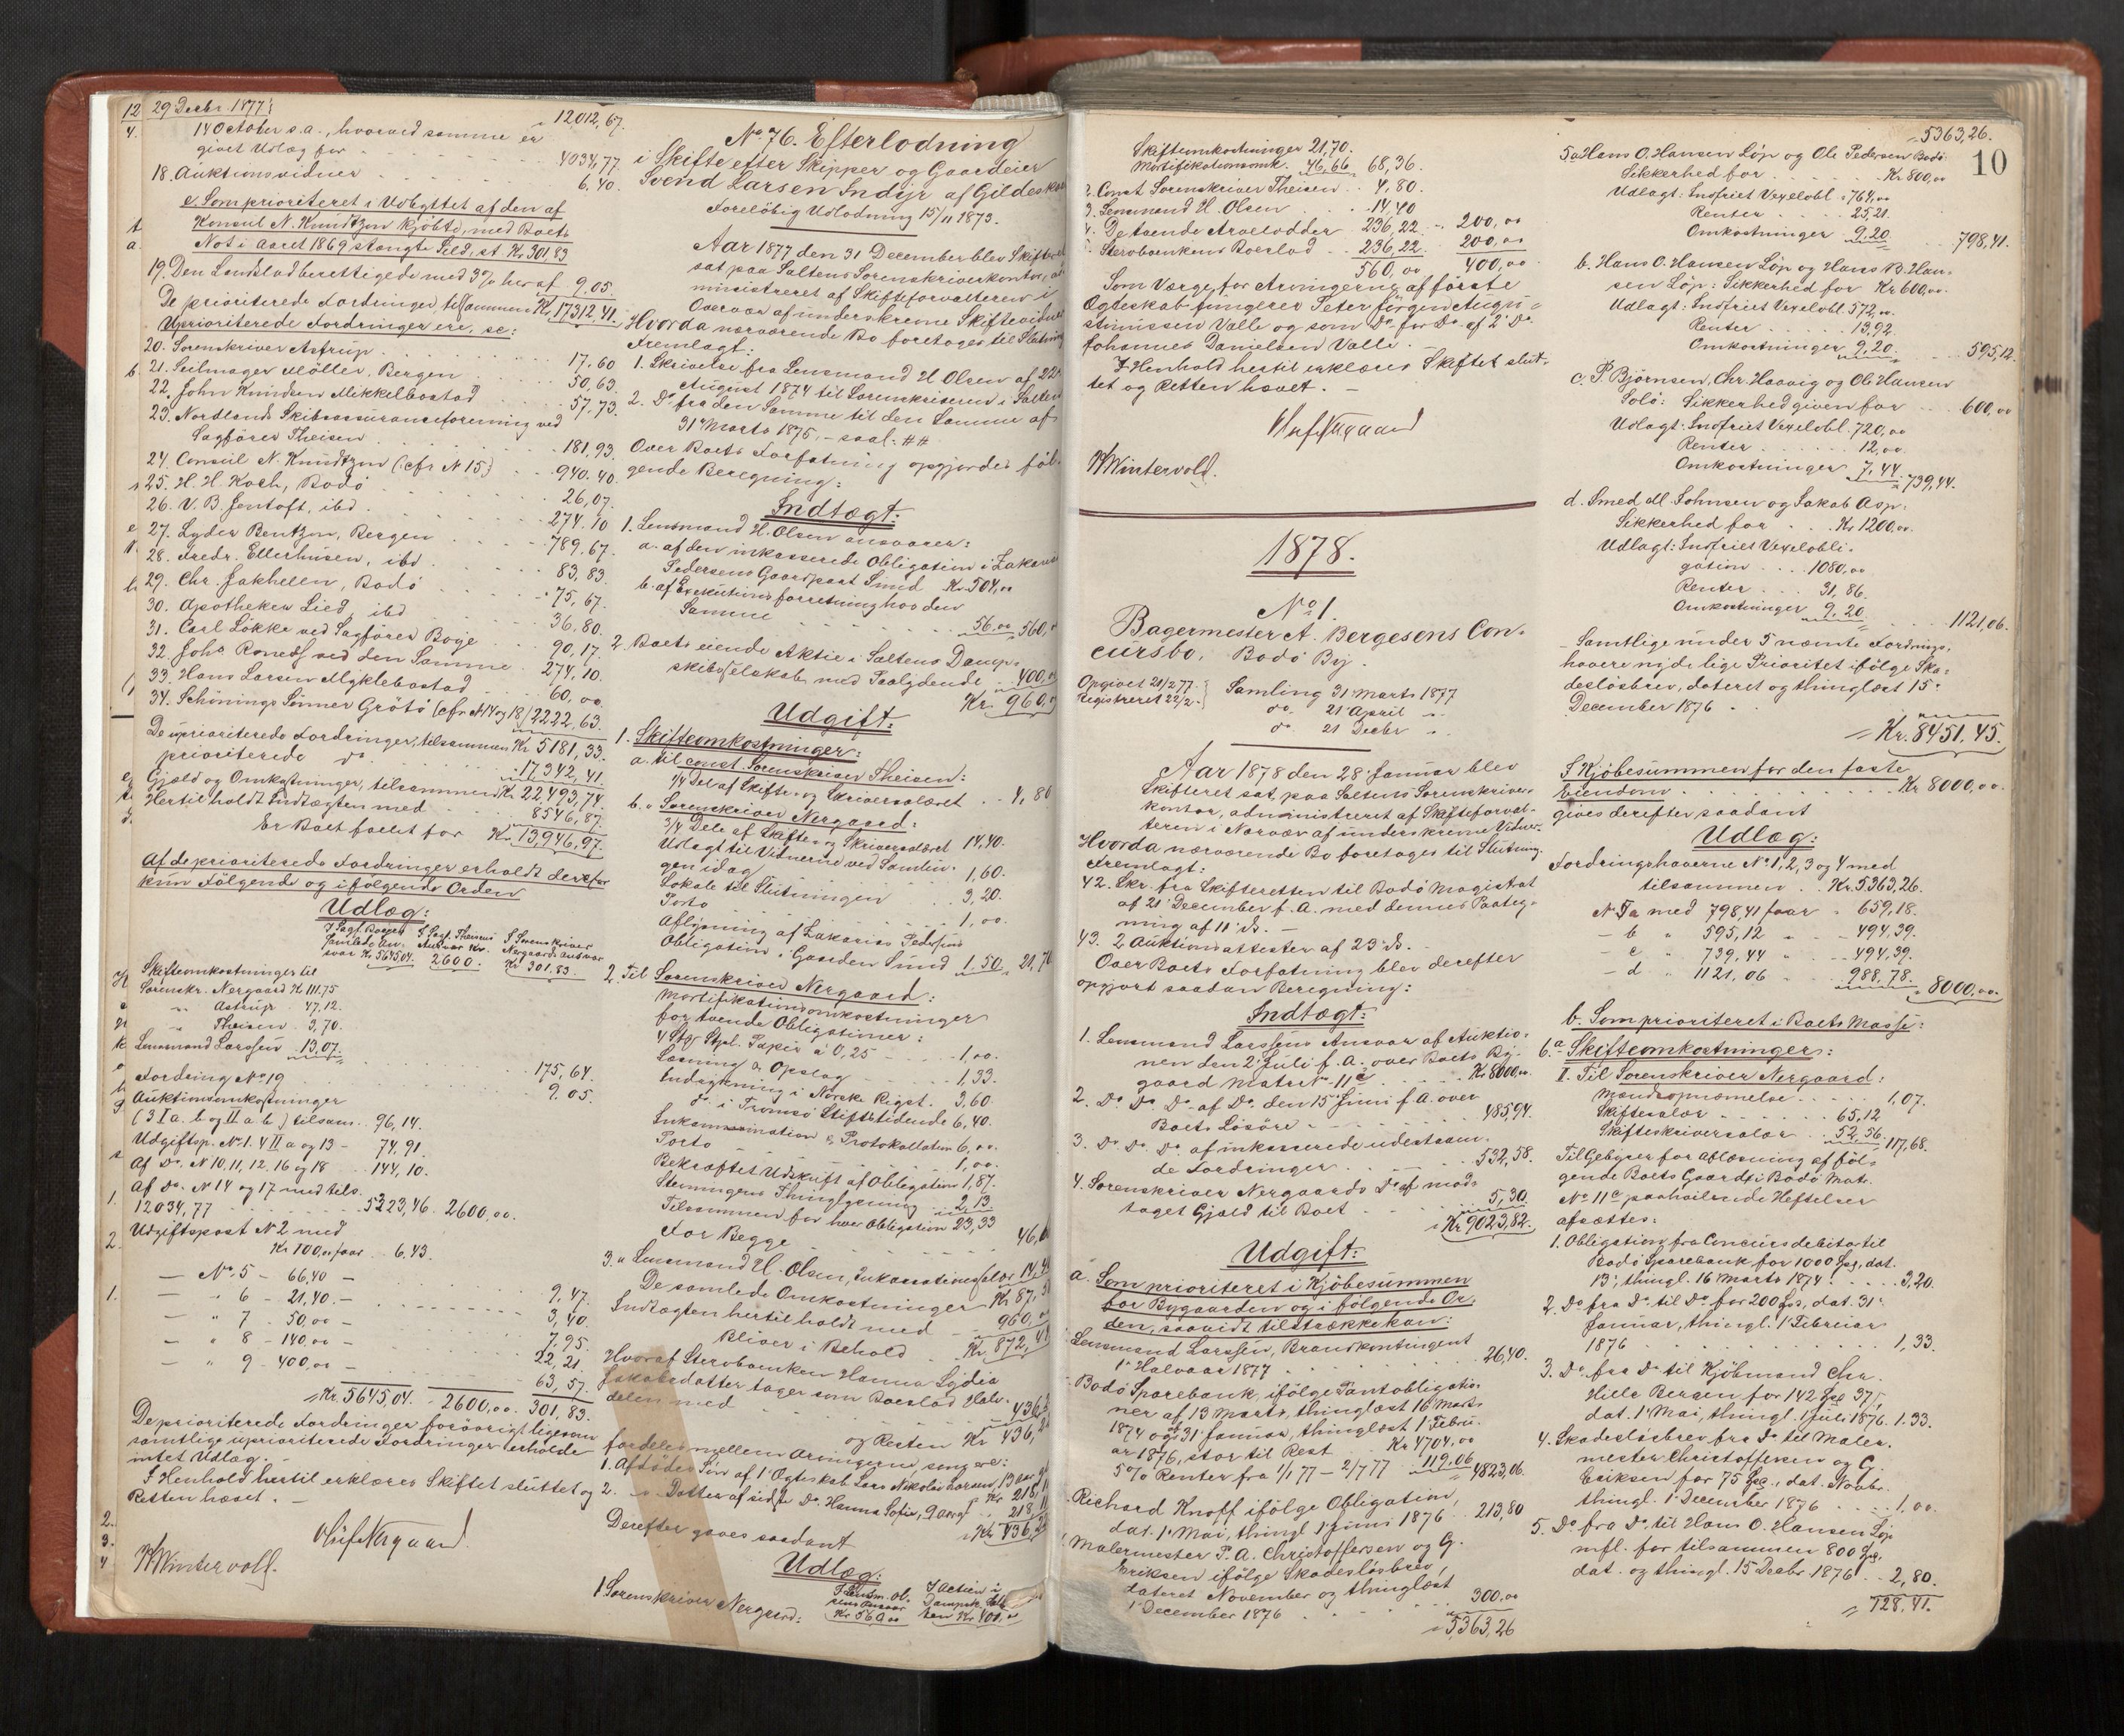 29 Decbr. 1877
12012,67.
14 October s.a., hvorved samme er
givet Udlæg for 4034,77
18. Auktionsvidner 6,40.
c. Som prioriteret i Udbyttet af den af
Konsul N. Knudtzon kjøbte, med Boets
Not i Aaret 1869 stængte Sild, st. Kr 301,83
19. Den Landslodberettigede med 3% heraf 9.05.
De prioriterede Fordringer, tilsammen Kr. 17312,41.
Uprioriterede Fordringer ere, se:
20. Sorenskriver Astrup 17.60
21. Seilmager Møller, Bergen 30,63.
22. John Knudsen Mikkelbostad 57.73.
23. Nordlands Skibsassuranceforening ved
Sagfører Theisen 181,93.
24. Consul N. Knudtzon (cfr N 15.) 940.40.
25. H. H. Koch, Bodø 26,07.
26. V. B. Jentoft, ibd. 274.10
27. Lyder Bentzon, Bergen 789,67.
28. Fredr. Ellerhusen, ibd 83,83.
29. Chr. Jakhelln, Bodø 75,67.
30. Apotheker Lied, ibd 36,80.
31. Carl Løkke ved Sagfører Boye 90,17.
32. Johs Roneds ved den Samme 274,10.
33. Hans Larsen Myklebostad 60,00.
34. Schønings Sønner Grøtø (cfr N 14 og 18) 2222,63.
De uprioriterede Fordringer, tilsammen Kr 5181,33.
prioriterede do 17342,41.
Gjæld og Omkostninger, tilsammen Kr 22,493,74.
Hertil holdt Indtægten med 8546,87.
Er Boet fallit for Kr. 13,946,97.
Af de prioriterede Fordringer erholdt derefter
kun Følgende og i følgende Orden
Udlæg:
I Sagf. Boyes samlede Ansvar Kr 5645,04.
I Sagf. Theisens Ansvar Kr. 2600.
I Sorenskriver Nergaards Ansvar Kr 301,83.
Skifteomkostninger til
Sorenskr. Nergaard Kr 111.75
" Astrup 47,12.
" Theisen 3,70.
Lensmand Larssen 13,07. 175,64.
Fordring No 19 9.05.
Auktionsomkostninger
(3 I a. b og II a b) tilsam. 96,14.
Udgiftsp. No 1. 4 II a og 13 - 74,91.
Af Do. N 10, 11, 12, 16 og 18 144,10.
Af Do. N 14 og 17 med tils.
12034,77 5223,46. 2600,00.
Udgiftspost N 2 med
Kr 100,00 faar 6.43.
— No 5 - 66,40 —
— " 6 - 21,40.— 9.47.
— " 7 - 50,00 — 3,40.
— " 8 - 140,00 — 7.95.
— " 9 - 400,00 — 22,21.
63,57.
Kr. 5645,04. 2600,00. 301,83.
De prioriterede Fordringer forøvrigt ligesom
samtlige uprioriterede Fordringer erholde
intet Udlæg.
I Henhold hertil erklæres Skiftet sluttet og
Retten hævet. —
Oluf Nergaard.
Wintervold.
No 76. Efterlodning
i Skifte efter Skipper og Gaardeier
Svend Larsen Indyr af Gildeskaal
Foreløbig Udlodning 15/11 1873.
Aar 1877, den 31 December blev Skifteret
sat paa Saltens Sorenskriverkontor, ad-
ministreret af Skifteforvalteren i
Overvær af underskrevne Skiftevidner
Hvorda nærværende Bo foretoges til Slutning
Fremlagt:
1. Skrivelse fra Lensmand H Olsen af 22
August 1874 til Sorenskriveren i Salten
2. Do fra den Samme til den Samme af
31 Marts 1875, - saal. ##
Over Boets Forfatning opgjordes føl-
gende Beregning:
Indtægt:
1. Lensmand H. Olsen ansvarer:
a. af den inkasserede Obligation i Zakarias
Pedersens Gaardpart Sund Kr. 504,00
b. af Executionsforretning hos den
Samme 56.00 560,
2. Boets eiende Aktie i Saltens Damp-
skibsselskab med Paalydende 400,
Kr. 960,
Udgift:
1. Skifteomkostninger:
a. til const. Sorenskriver Theisen:
1/4 Del af Skifte- og Skriversalæret 4,80
b. " Sorenskriver Nergaard:
3/4 Dele af Skifte- og Skriversalæret 14,40.
Udlagt til Vidnerne ved Samlin-
gen idag 1,60.
Lokale til Slutningen 3,20.
Porto 1,00.
Aflysning af Zakarias Pedersens
Obligation i Gaarden Sund 1.50. 21,70
2. Til Sorenskriver Nergaard:
Mortifikationsomkostninger
for tvende Obligationer:
4 Stk Stpl. Papir á 0,25 1,00.
Læsning & Opslag 1,33.
Indrykning i Norske Rigst. 3,60.
do. i Tromsø Stiftstidende 6,40.
Inkammination & Protokollation 6,00.
Porto 1,00.
Bekræftet Udskrift af Obligation 1,87.
Stevningens Thinglysning 2.13.
Tilsammen for hver Obligation 23,33
For Begge 46,
3. " Lensmand H. Olsen, Inkassationssalær 14,40
De samlede Omkostninger Kr 87,
Indtægten hertil holdt med 960,
Bliver i Behold Kr 872,
Hvoraf Stervboenken Hanna Lydia
Jakobsdatter tager som Boeslod Halv-
delen med 436,
og Resten Kr 436,
fordeles mellem Arvingerne, som ere:
1. Afdødes Søn af 1' Ægteskab Lars Nikolai Larsen, 13 aar Kr 218,
2. — Datter af sidste Do. Hanna Sofie, 9 aar 218,
Kr 436,
Derefter gaves saadant
Udlæg:
I Lensm. Olsens Ansvar Kr 560,00
I Actien i Dampsk. Salten Kr 400,00
1. Sorenskriver Nergaard:
Skifteomkostninger 21,70.
Mortifikationsomk. 46,66 68,36.
2. Const. Sorenskriver Theisen 4,80.
3. Lensmand H. Olsen 14,40
4. De tvende Arvelodder 236,22 200,00
5. Stervboenkens Boeslod 236,22 200,00
560,00 400,00
Som Værge for Arvingerne af første
Ægteskab fungerer Peter Jørgen Augu-
stinussen Valle og som Do for Do af 2' Do
Johannes Danielsen Valle.
I Henhold hertil erklæres Skiftet slut-
tet og Retten hævet. —
Oluf Nergaard
Wintervold.
1878.
No 1.
Bagermester A. Bergesens Con-
cursbo, Bodø By.
Opgivet 21/2 77.
Registreret 22/2.
Samling 31 Marts 1877
do. 21 April "
do 21 Decbr "
Aar 1878 den 28' Januar blev
Skifteret sat paa Saltens Sorenskriver-
kontor, administreret af Skifteforval-
teren i Nærvær af underskrevne Vidner.
Hvorda nærværende Bo foretoges til Slutning.
Fremlagt:
42. Skr. fra Skifteretten til Bodø Magistrat
af 21' December f. A. med dennes Paateg-
ning af 11' ds. —
43. 2 Auktionsattester af 23' ds.
Over Boets Forfatning blev derefter
opgjort saadan Beregning:
Indtægt:
1. Lensmand Larssens Ansvar af Auktio-
nen den 2' Juli f. A. over Boets By-
gaard Matr. No 11c Kr 8000,00.
2. Do Do Do af Do. den 15' Juni f. A. over
Boets Løsøre 485,94.
3. Do Do Do af inkasserede udestaaen-
de Fordringer 532,58.
4. Sorenskriver Nergaards Do af mod-
taget Gjæld til Boet 5,30.
Kr. 9023,82.
Udgift:
a. Som prioriteret i Kjøbesummen
for Bygaarden og i følgende Or-
den, saavidt tilstrække kan:
Lensmand Larssen, Brandkontingent
1' Halvaar 1877 26,40.
Bodø Sparebank, ifølge Pantobligatio-
ner af 13 Marts, thinglæst 16 Marts
1874 og 31' Januar, thinglæst 1' Febru-
ar 1876, stor til Rest Kr 4704,00
5% Renter fra 1/1 77 — 2/7 77 119,06 4823,06.
Richard Knoff ifølge Obligation,
dat. 1' Mai, thingl 1' Juni 1876 213,80
Malermester P. A. Christoffersen og G.
Eriksen ifølge Skadesløsbrev,
dateret November og thinglæst
1' December 1876 300,00
5363,26
5363,26.
10
5 a Hans O. Hansen Løp og Ole Pedersen Bodø:
Sikkerhed for Kr 800,00
Udlagt: Indfriet Vexelobl. 764,00
Renter 25,21.
Omkostninger 9,20 798,41.
b. Hans O. Hansen Løp og Hans B. Han-
sen Løp: Sikkerhed for Kr 600,00.
Udlagt: Indfriet Vexelobl. 572,00.
Renter 13,92.
Omkostninger 9,20. 595,12.
c. P. Bjørnsen, Chr. Haavig og Ole Hansen
Solø: Sikkerhed given for 600,00
Udlagt: Indfriet Vexelobl. 720,00
Renter 12,00.
Omkostninger 7,44 739,44.
d. Smed M. Johnsen og Jakob Asp:
Sikkerhed for Kr 1200,00.
Udlagt: Indfriet Vexelobli-
gation 1080,00
Renter 31,86.
Omkostninger 9,20 1121,06.
Samtlige under 5 nævnte Fordrings-
havere nyde lige Prioritet ifølge Ska-
desløsbrev, dateret og thinglæst 15'
December 1876.
Kr. 8451,45.
I Kjøbesummen for den faste
Eiendom Kr 8000,00.
gives derefter saadant
Udlæg:
Fordringshaverne No 1, 2, 3 og 4 med
tilsammen Kr. 5363,26.
No 5 a med 798,41 faar 659,18.
— b " 595,12 " 494,39.
— c " 739,44 " 494,39.
— d " 1121,06 " 988,78.
8000,00.
b. Som prioriteret i Boets Masse:
6.a Skifteomkostninger:
I. Til Sorenskriver Nergaard:
Mandsopnævnelse 1,07.
Skiftesalær 65,12
Skifteskriversalær 52,56. 117,68.
Til Gebyrer for Aflæsning af føl-
gende Boets Gaard i Bodø Matr.
No 11c paahvilende Heftelser
afsættes:
1. Obligation fra Concursdebitor til
Bodø Sparebank for 1000 Spd, dat.
13', thingl. 16 Marts 1874 3,20.
2. Do fra Do til Do for 200 Spd, dat. 31'
Januar, thingl. 1' Februar
1876 1,33.
3. Do fra Do til Kjøbmand Chr.
Hille Bergen for 142 Spd 37 ß,
dat. 1' Mai, thingl. 1' Juli 1876. 1.33.
4. Skadesløsbrev fra Do til Maler-
mester Christoffersen og G.
Eriksen for 75 Spd., dat. Novbr.
thingl. 1' December 1876 1,00.
5. Do fra Do til Hans O. Hansen Løp
mfl. for tilsammen 800 Spd,
dat. og thingl. 15 Decbr. 1876 2,80.
128,41.